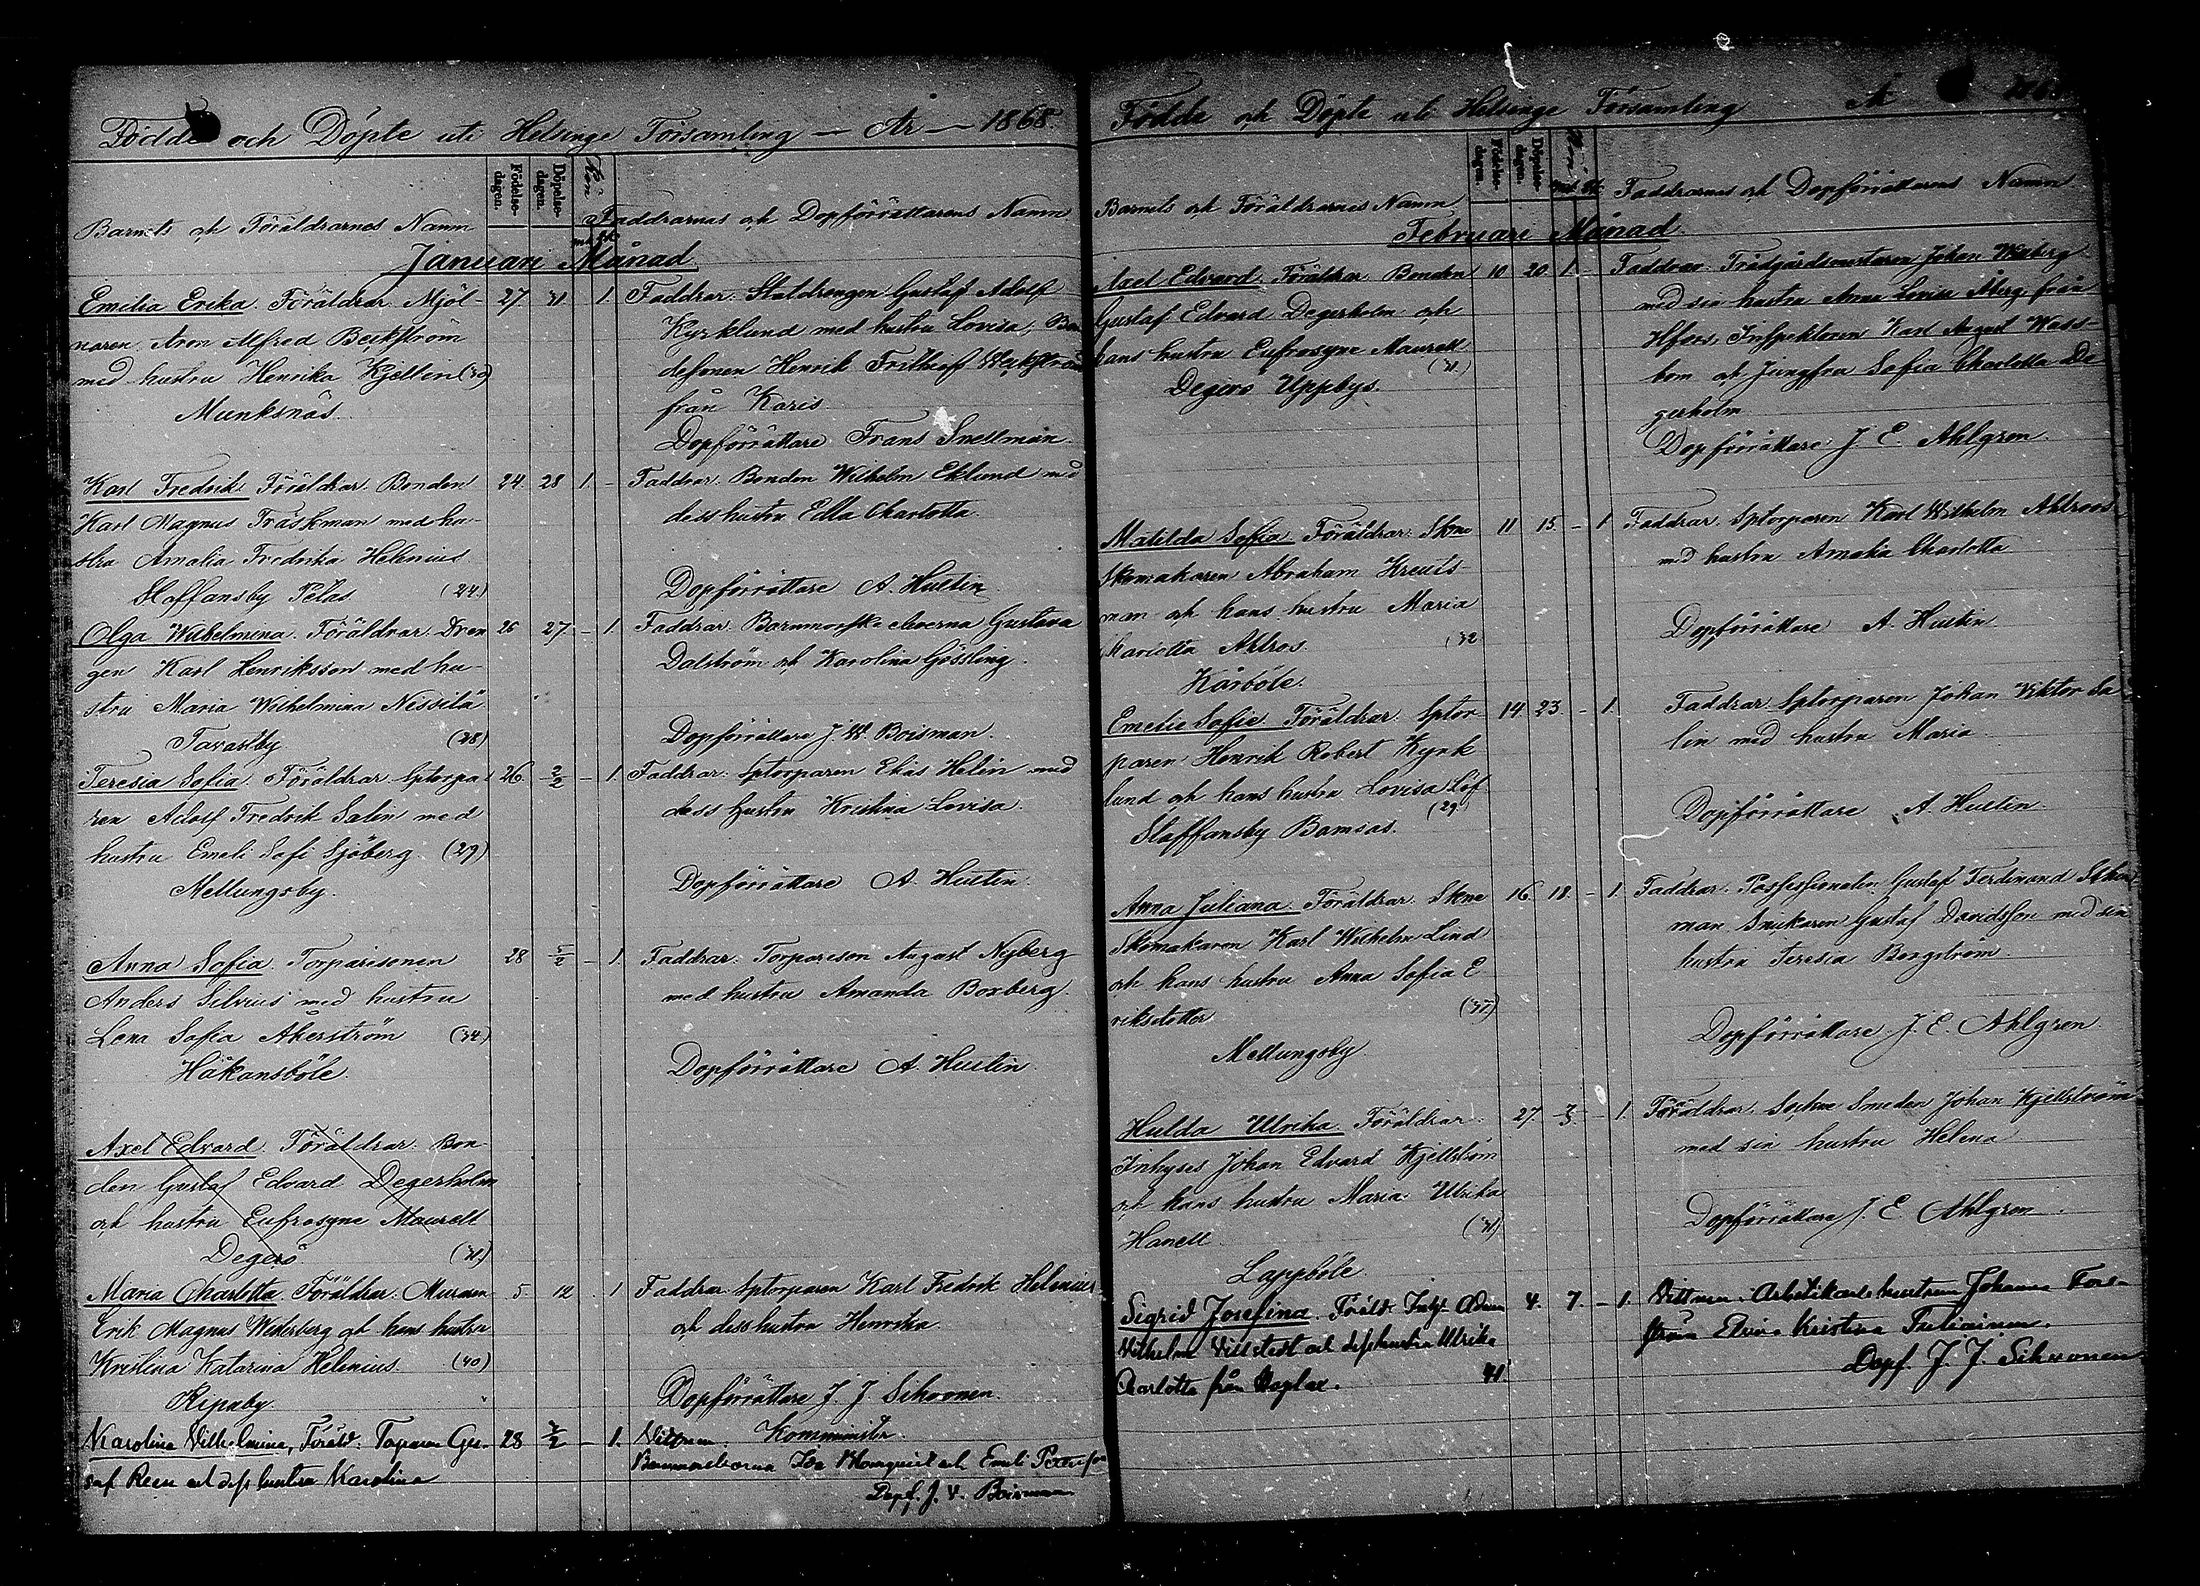 Födde och Döpte uti Helsinge Församling — År — 1868.
Barnets och Föräldrarnes Namn
Födelse-
dagen.
Döpelse-
dagen.
Kön
Faddrarnas och Dopförrättarens Namn
Januari Månad
Emilia Erika. Föräldrar. Mjöl- 27. 31 1.
naren Aron Alfred Beckström
med hustru Henrika Kjellin (30)
Munksnäs.
Faddrar. Statdrengen Gustaf Adolf
Kyrklund med hustru Lovisa; Bon
desonen Henrik Frithiof
från Karis.
Dopförrättare Frans Snellman.
Karl Fredrik. Föräldrar. Bonden 24. 28 1. -
Karl Magnus Träskman med hu-
stru Amalia Fredrika Helenius.
Staffansby Pelas (24.)
Faddrar. Bonden Wilhelm Eklund med
dess hustru Edla Charlotta.
Dopförrättare A. Hustin.
Olga Wilhelmina. Föräldrar. Dren 25 27. - 1.
gen Karl Henriksson med hu-
stru Maria Wilhelmina Nissilä
Tavastby (28)
Faddrar. Barnmorske eleverna Gustava
Dalström och Karolina Gössling.
Dopförrättare J. W. Boisman.
Teresia Sofia. Föräldrar. Sptorpa 26. 2/2 - 1.
ren Adolf Fredrik Salin med
hustru Emeli Sofi Sjöberg. (29)
Mellungsby.
Faddrar: Sptorparen Elias Helin med
dess hustru Kristina Lovisa.
Dopförrättare A. Hustin.
Anna Sofia. Torparesonen 28 5/2 - 1.
Anders Silvius med hustru
Lena Sofia Åkerström (34)
Håkansböle.
Faddrar. Torpareson August Nyberg
med hustru Amanda Boxberg.
Dopförrättare A. Hustin.
Axel Edvard. Föräldrar. Bon
den Gustaf Edvard Degerholm
och hustru Eufrosyne Maurell
Degerö (31)
Maria Charlotta. Föräldrar. Muraren 5. 12 1
Erik Magnus Westerberg och hans hustru
Kristina Katarina Helenius. (40)
Ripuby
Faddrar. Sptorparen Karl Fredrik Helenius
och dess hustru Henrika.
Dopförrättare J. J. Sihvonen.
Komminister.
Karolina Vilhelmina, Föräld. Torparen Gus- 28 - 1.
taf Reen och dess hustru Karolina
Vittnen.
Barnmorskorna Ida Blomquist och Emeli
Dopf. J. V. Boisman
Födda och Döpte uti Helsinge Församling År
Barnets och Föräldrarnes Namn
Födelse-
dagen.
Döpelse-
dagen.
Kön
Faddrarnes och Dopförrättarens Namn
Februari Månad.
Axel Edvard. Föräldrar. Bonden 10 20. 1. -
Gustaf Edvard Degerholm och
hans hustru Eufrosyne Maurell
(31.)
Degerö Uppbys.
Faddrar. Trädgårdsmästaren Johan
med sin hustru Anna Lovisa Åberg från
Hfors, Inspektoren Karl August Wass-
bom och Jungfru Sofia Charlotta De
gerholm
Dopförrättare J. E. Ahlgren.
Matilda Sofia. Föräldrar: Skne 11 15. - 1
Skomakaren Abraham Kreuts
man och hans hustru Maria
Charlotta Ahlros. (32
Kårböle.
Faddrar. Sptorparen Karl Wilhelm Ahlroos
med hustru Amalia Charlotta
Dopförrättare A. Hustin
Emelie Sofie. Föräldrar. Sptor- 14 23. - 1.
paren Henrik Robert Kyrk
lund och hans hustru Lovisa Löf.
(29.
Staffansby Bomsas.
Faddrar Sptorparen Johan Viktor Sa
lin med hustru Maria.
Dopförrättare A. Hustin.
Anna Juliana. Föräldrar. Skne 16. 18. - 1.
Skomakaren Karl Wilhelm Lind
och hans hustru Anna Sofia E
riksdotter
Mellungsby.
Faddrar. Possessionaten Gustaf Ferdinand
man Snickaren Gustaf Davidsson med sin
hustru Teresia Bergström.
Dopförrättare J. E. Ahlgren.
Hulda Ulrika. Föräldrar. 27. - 1.
Inhyses Johan Edvard Kjellström
och hans hustru Maria Ulrika
Hanell (31)
Lappböle.
Föräldrar. Sockne Smeden Johan Kjellström
med sin hustru Helena
Dopförrättare J. E. Ahlgren.
Sigrid Josefina. Föräld. Inhys. Adam 4. 7. - 1.
Vilhelm och dess hustru Ulrika
Charlotta från Haplax. 41
Vittnen. Arbetskarls hustrun Johanna
Kristina
Dopf. J. J. Sihvonen